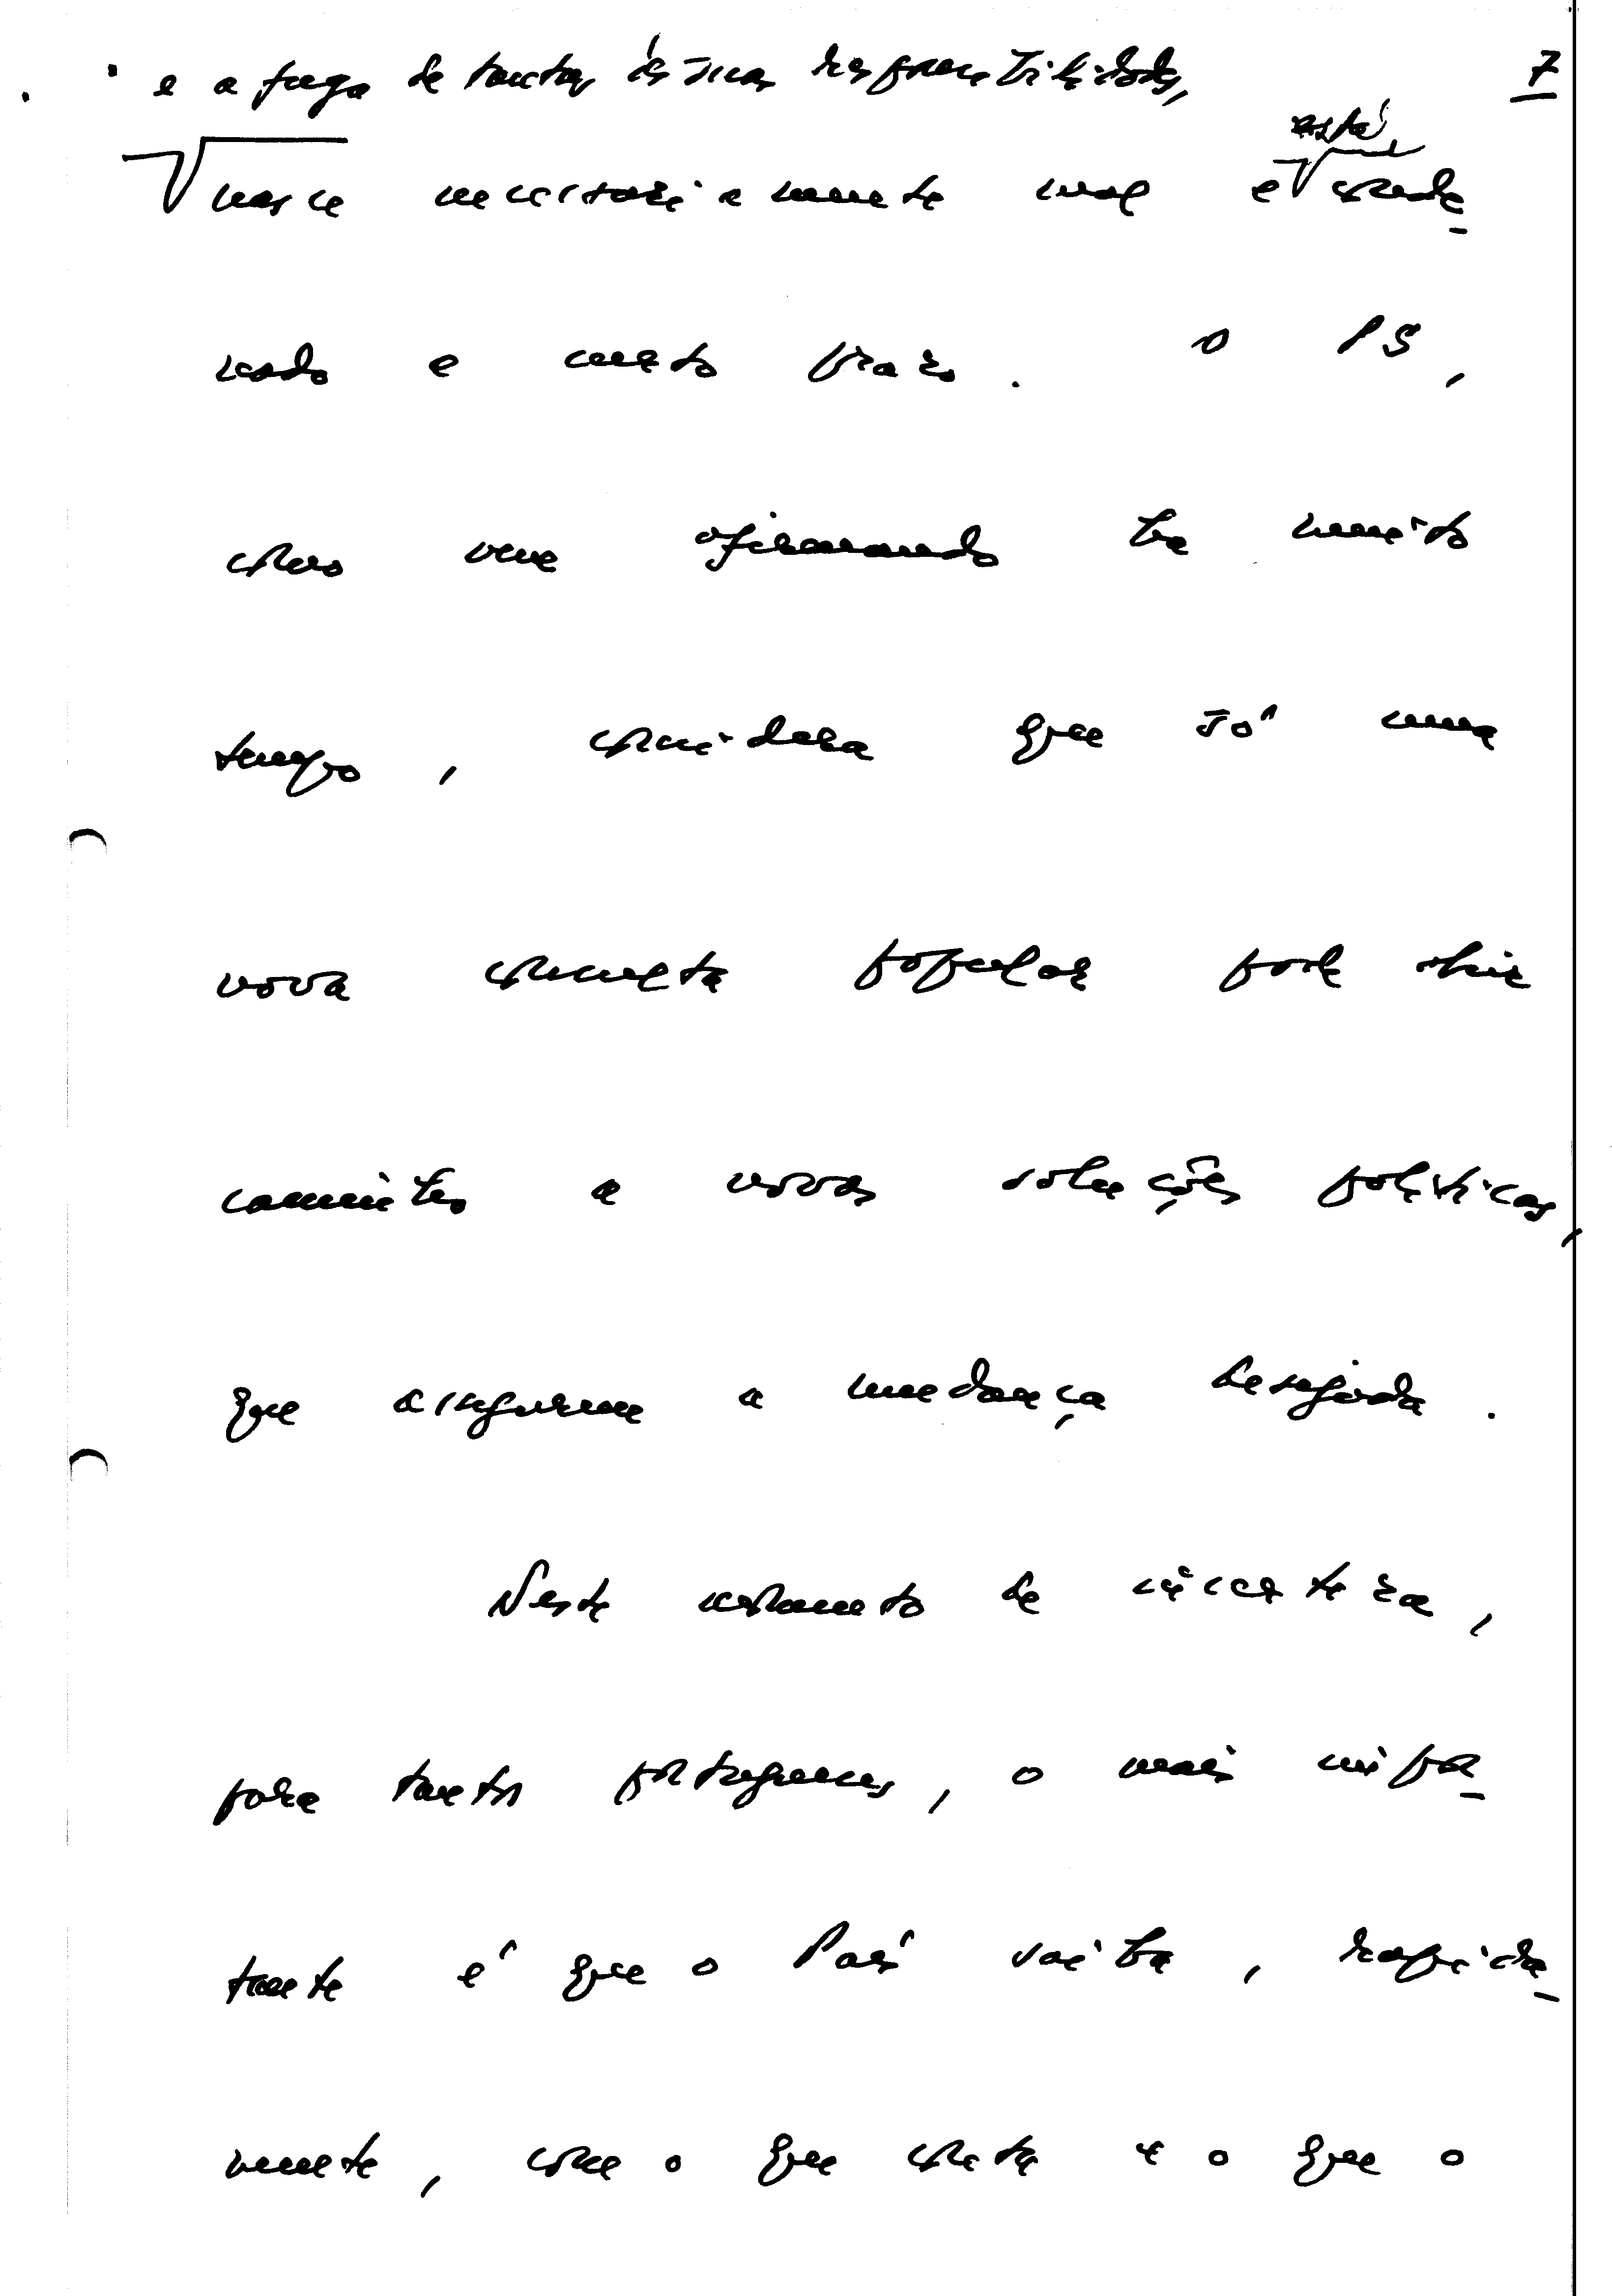 e a fuga de tantos às suas responsabilidades,
7
está
nasce necessariamente mal e conde_
nado a curto prazo. O PS,
como vem afirmando há muito
tempo, considera que só uma
nova consulta popular pode abrir
caminho a novas soluções políticas,
que assegurem a mudança desejada.
Neste momento de incerteza,
para tantos portugueses, o mais impor_
tante é que o País saiba, rapida_
mente, com o que conta e o que o